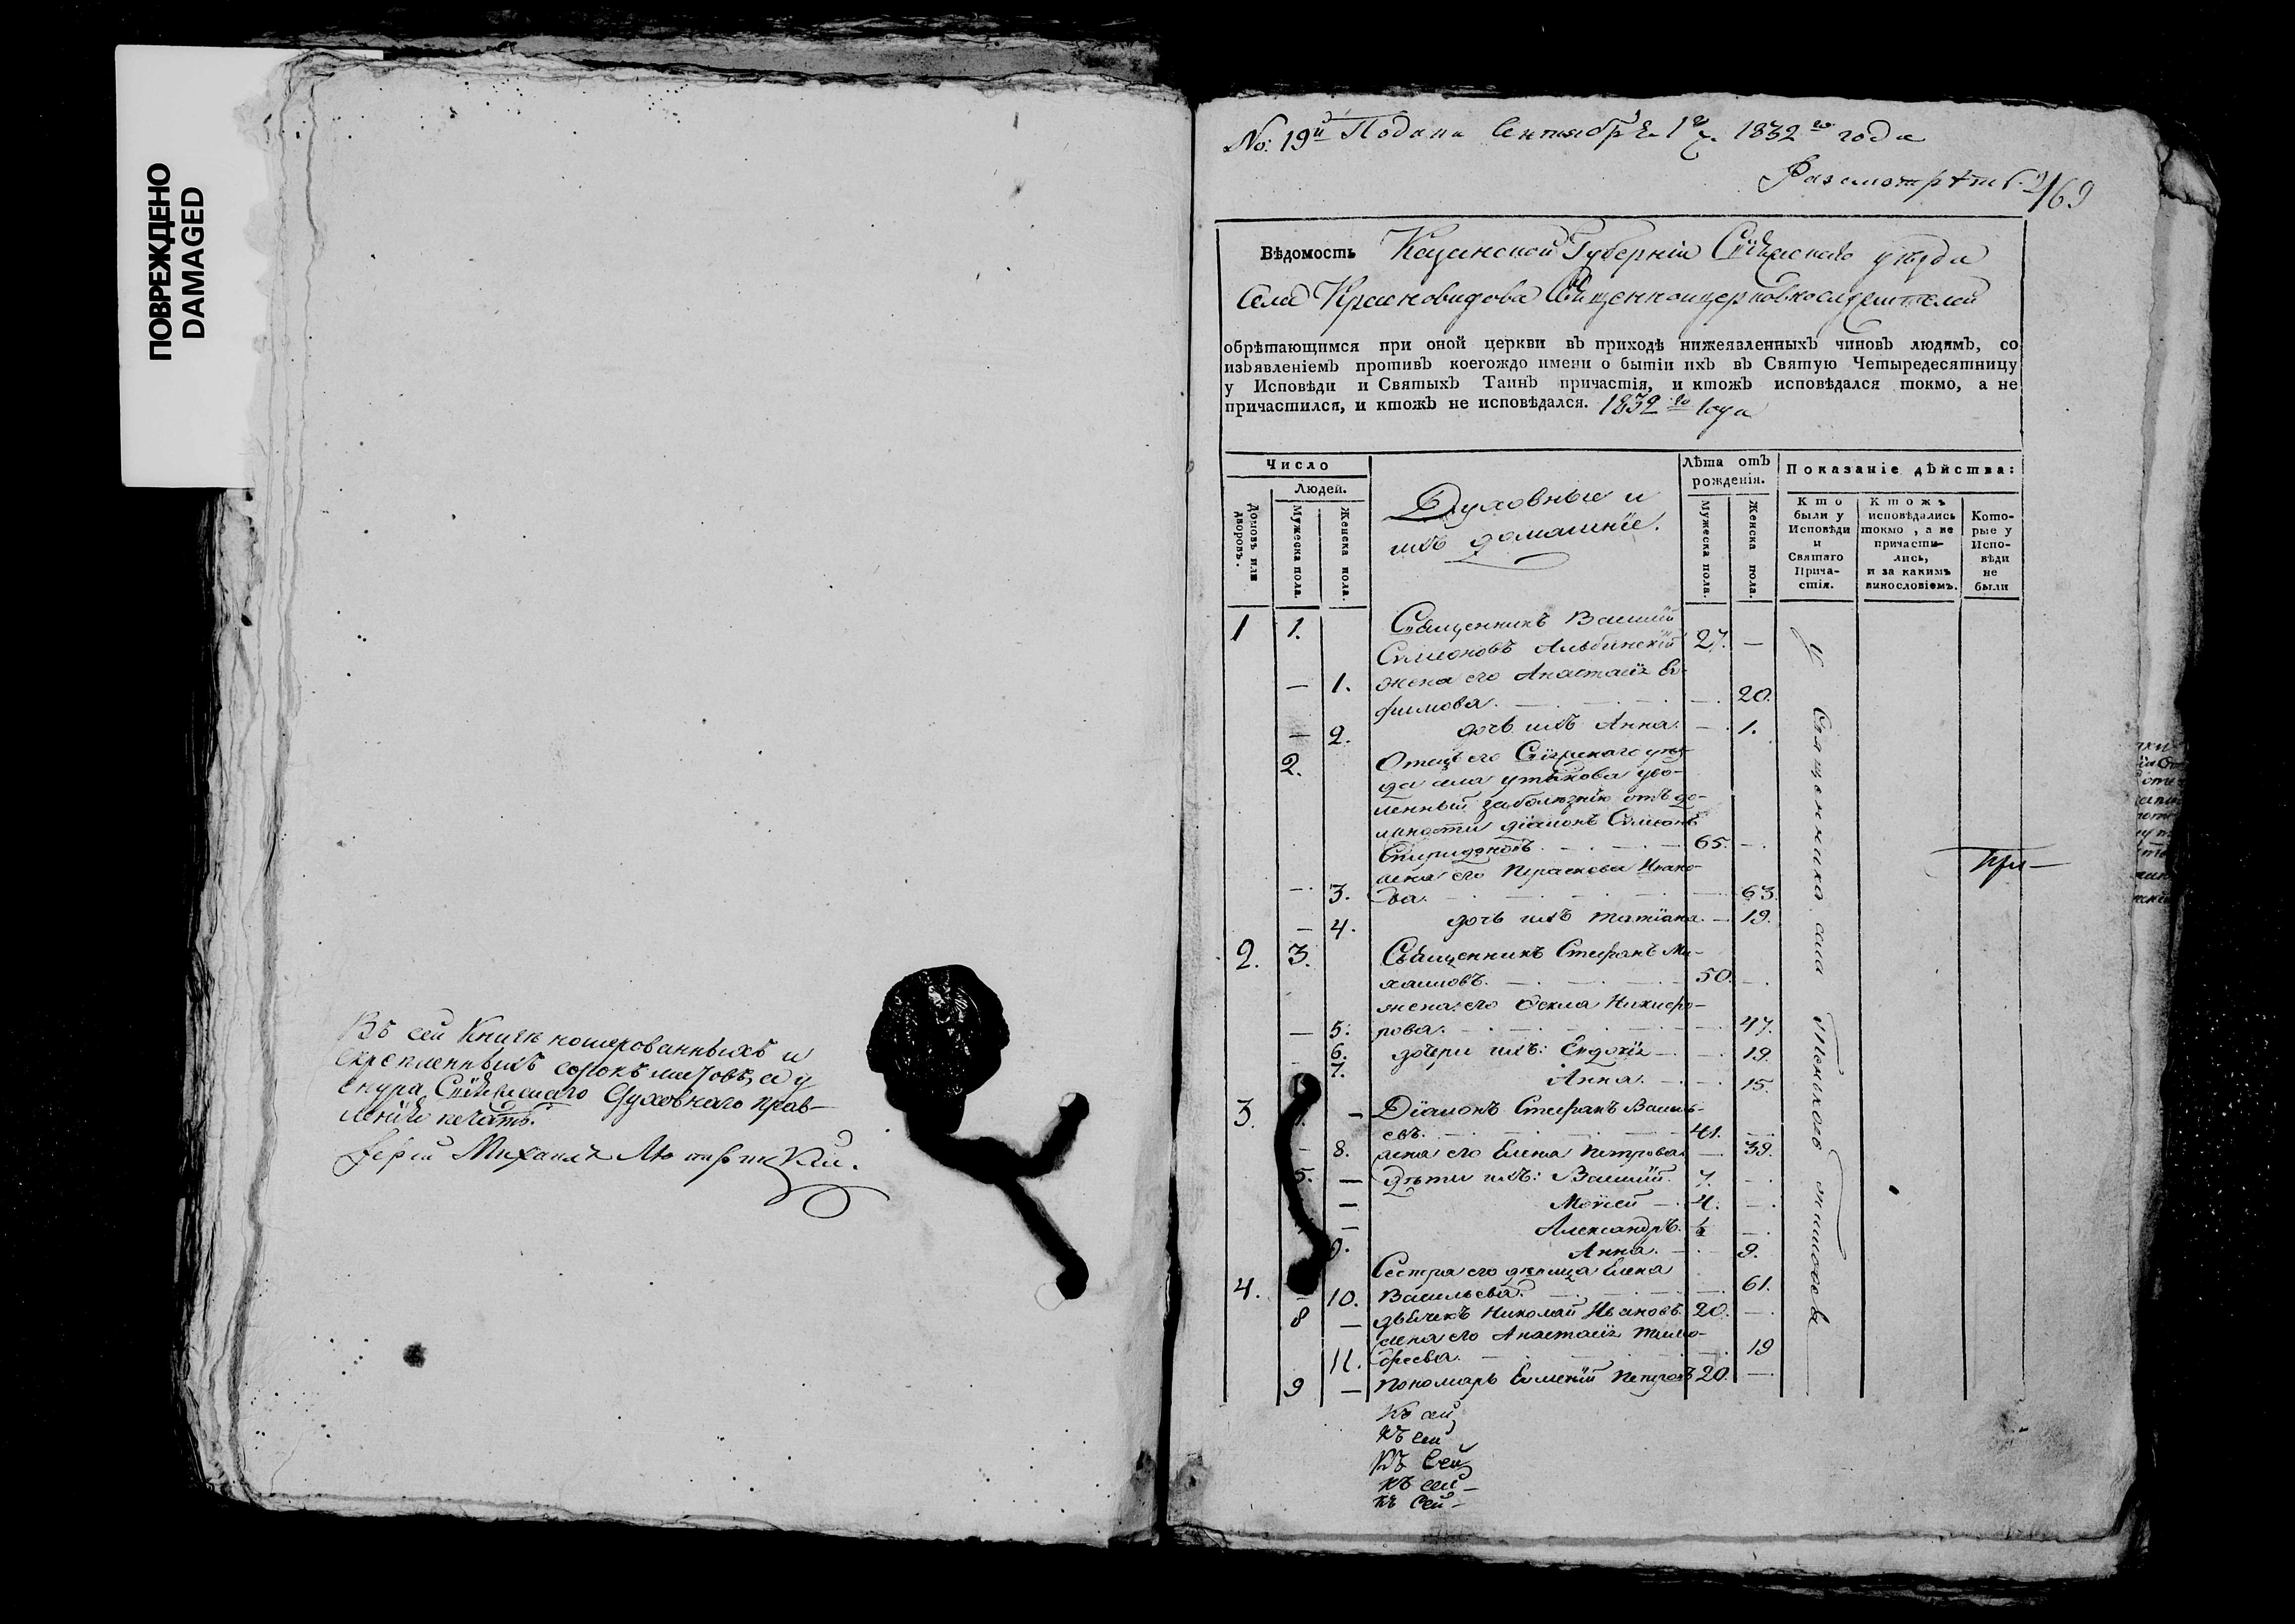 ПОВРЕЖДЕНО
DAMAGED
Въ сей Книгѣ номерованныхъ и
скрепленныхъ сорокъ листовъ, а у
снура Свіяжскаго Духовнаго Прав-
ленія печать.
Іерей Михаилъ
No: 19й Подана Сентября 1го ч. 1832го года
Разсмотрѣть
169
Вѣдомость Казанской Губерніи Свіяжскаго уѣзда
Села Красновидова Священноцерковнослужителей
обрѣтающимся при оной церкви въ приходѣ нижеявленныхъ чиновъ людямъ, со
изъявленіемъ противъ коегождо имени о бытіи ихъ въ Святую Четыредесятницу
у Исповѣди и Святыхъ Таинъ причастія, и ктожъ исповѣдался токмо, а не
причастился, и ктожъ не исповѣдался. 1832го года
Число
Людей.
Домовъ или дворовъ.
Мужеска пола.
Женска пола.
Духовные и
ихъ домашніе.
Лѣта отъ
рожденія.
Мужеска пола.
Женска пола.
Показаніе дѣйства:
Кто
были у
Исповѣди
и
Святаго
Прича-
стія.
Ктожъ
исповѣдались
токмо, а не
причасти-
лись,
и за какимъ
винословіемъ.
Кото-
рые у
Испо-
вѣди
не
были
1 1. Священникъ Василій
Симеоновъ Альбинскій 27. —
— 1. жена его Анастасія Е-
фимова. — 20.
— 2. дочь ихъ Анна. — 1.
2. Отецъ его Свіяжскаго уѣз-
да села Утякова уво-
ленный за болѣзнію отъ до-
лжности діаконъ Симеонъ
Спиридоновъ. 65. —
жена его Параскева Ивано-
— 3. ва. — 63.
— 4. дочь ихъ Татіана. — 19.
2. 3. Священникъ Стефанъ Ми-
хаиловъ. 50. —
жена его Фекла Никифо-
— 5. рова. — 47.
6. дочери ихъ: Евдокія — 19.
7. Анна. — 15.
3. — Діаконъ Стефанъ Василь-
евъ. 41. —
8. жена его Елена Петрова. — 39.
5. — дѣти ихъ: Василій. 7. —
— Моисей 4. —
— Александръ. ½ —
9. Анна. — 9.
Сестра его дѣвица Елена
10. Васильева. — 61.
4. 8 — дьячекъ Николай Ивановъ. 20. —
жена его Анастасія Тимо-
11. феева. — 19
9 — Пономарь Евменій Петровъ 20. —
У Священника села Тенькова
при
Къ сей
къ сей
къ сей
къ сей
къ сей